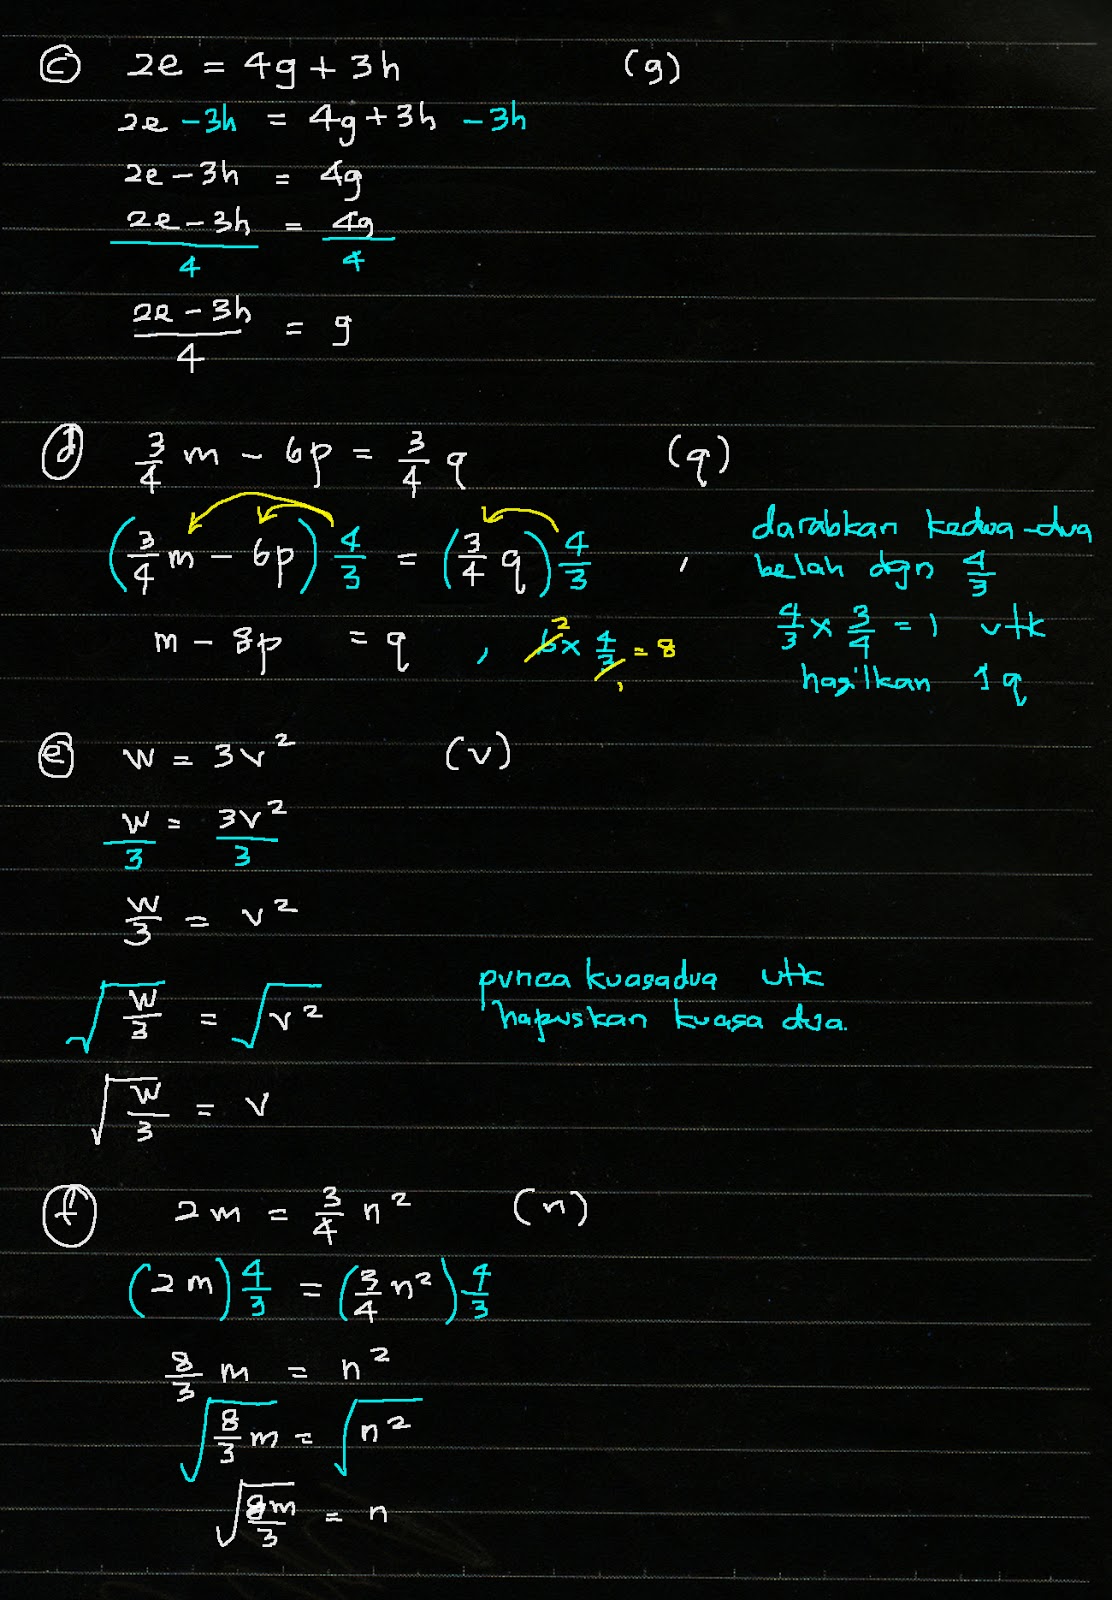 (c) 2e = 4g + 3h (g)
2e - 3h = 4g + 3h - 3h
2e - 3h = 4g
(2e - 3h)/4 = 4g/4
(2e - 3h)/4 = g
(d) 3/4 m - 6p = 3/4 q (q)
(3/4 m - 6p) 4/3 = (3/4 q) 4/3 , darabkan kedua-dua
belah dgn 4/3
m - 8p = q , 6² × 4/3₁ = 8 4/3 × 3/4 = 1 utk
hasilkan 1q
(e) w = 3v² (v)
w/3 = 3v²/3
w/3 = v²
√(w/3) = √(v²) punca kuasadua utk
hapuskan kuasa dua.
√(w/3) = v
(f) 2m = 3/4 n² (n)
(2m) 4/3 = (3/4 n²) 4/3
8/3 m = n²
√(8/3 m) = √(n²)
√(8m/3) = n